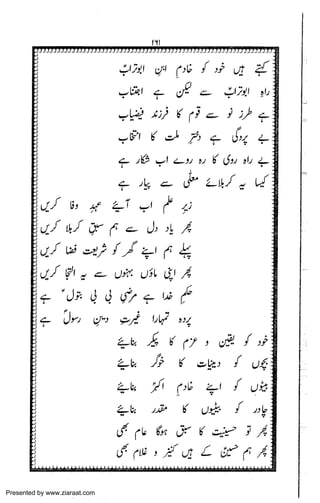 ۱۶۱
کہتے ہیں خود کو خادمِ ابنِ ابوترابؑ
راہِ ابوترابؑ سے لیکن ہے اجتناب
ہے طرزِ نو سے قوم کا فرزند فیضیاب
بے پردگی ہے دخترِ ملت کا انتخاب
بے راہ روی کا رہ روے اب شکار ہے
کیسا یہ کربلائے معلّٰی سے پیار ہے
زیرِ علم اب آیئے عہدِ وفا کریں
پھر یاد دل سے ہم سبقِ کربلا کریں
پہلے ہم اپنے گھر کو شریعت فضا کریں
پھر اپنی ماؤں بہنوں سے یہ التجا کریں
حکمِ خدا ہے مرضیِ بی بی بتولؑ ہے
پردہ تمہارا غیرتِ دینِ رسولؐ ہے
خود کو یقین و عزم کا پیکر بنایئے
بچوں کو دینیات کا خوگر بنایئے
بیٹوں کو اپنے خادمِ اکبرؑ بنایئے
چادر کو بیٹیوں کا مقدر بنایئے
پھر تو حسینیت کا سبق ہوگا عام بھی
پھر ہم حسینؑ کے ہیں کنیز و غلام بھی
Presented by www.ziaraat.com